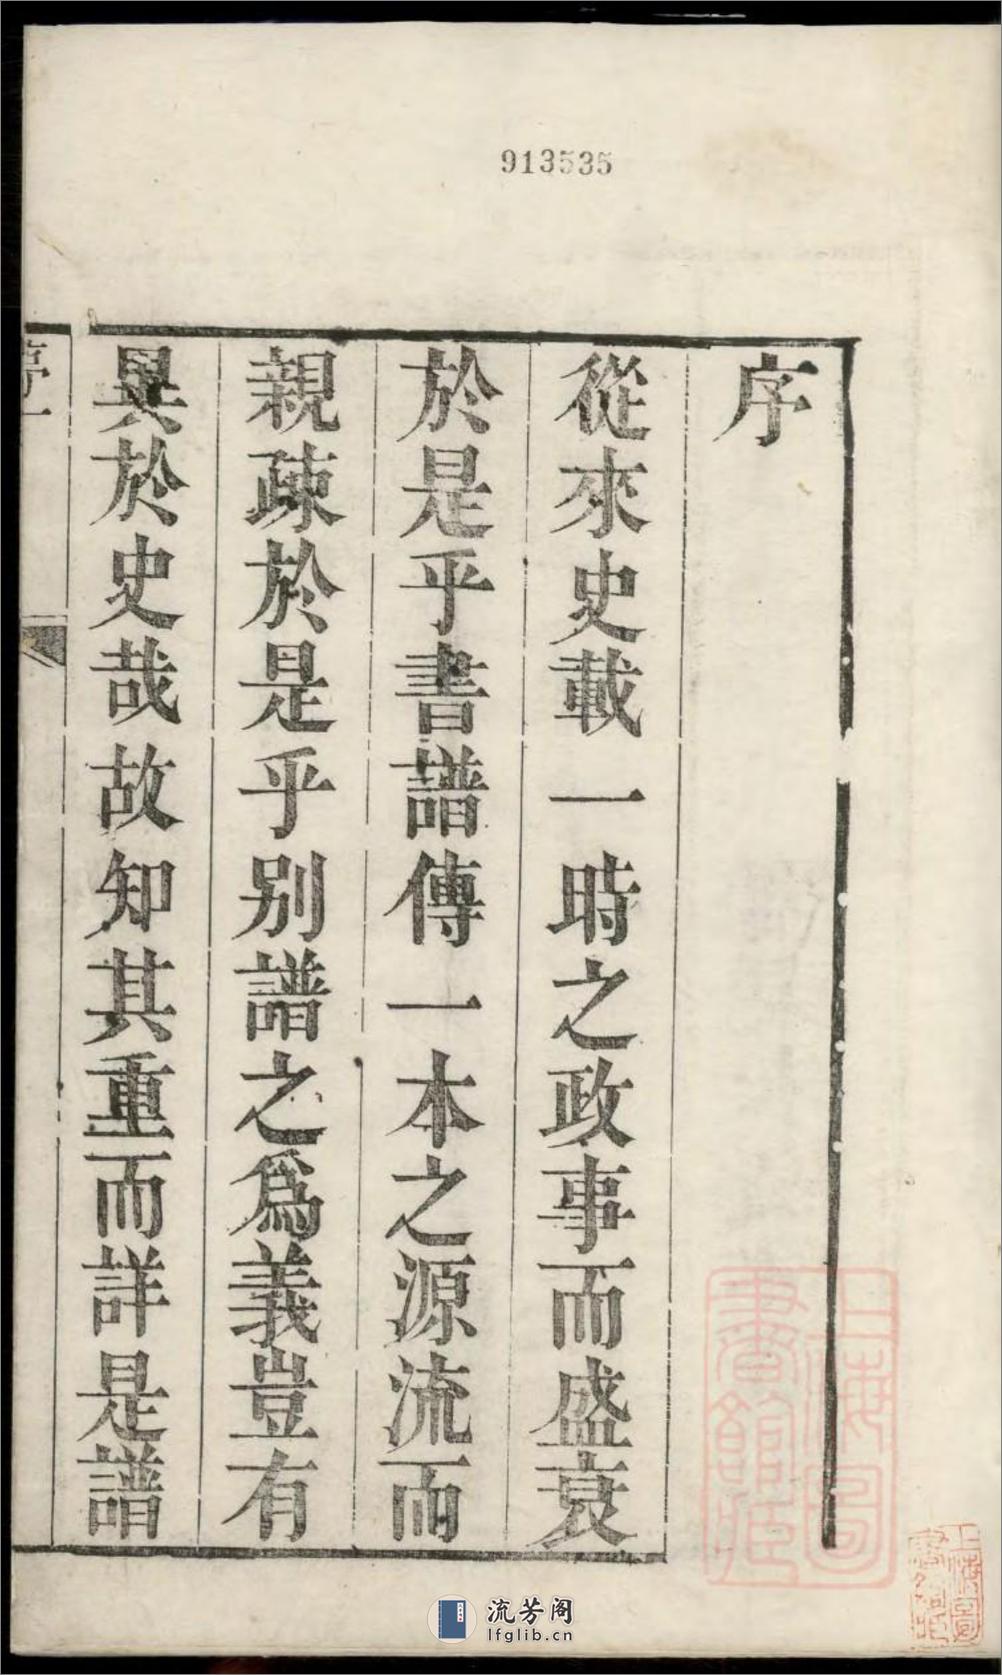 913535
序
從來史載一時之政事而盛衰
於是乎書譜傳一本之源流而
親疎於是乎別譜之爲義豈有
異於史哉故知其重而詳是譜
上海圖
書館藏
上海圖
書館藏
流芳阁
lfglib.cn